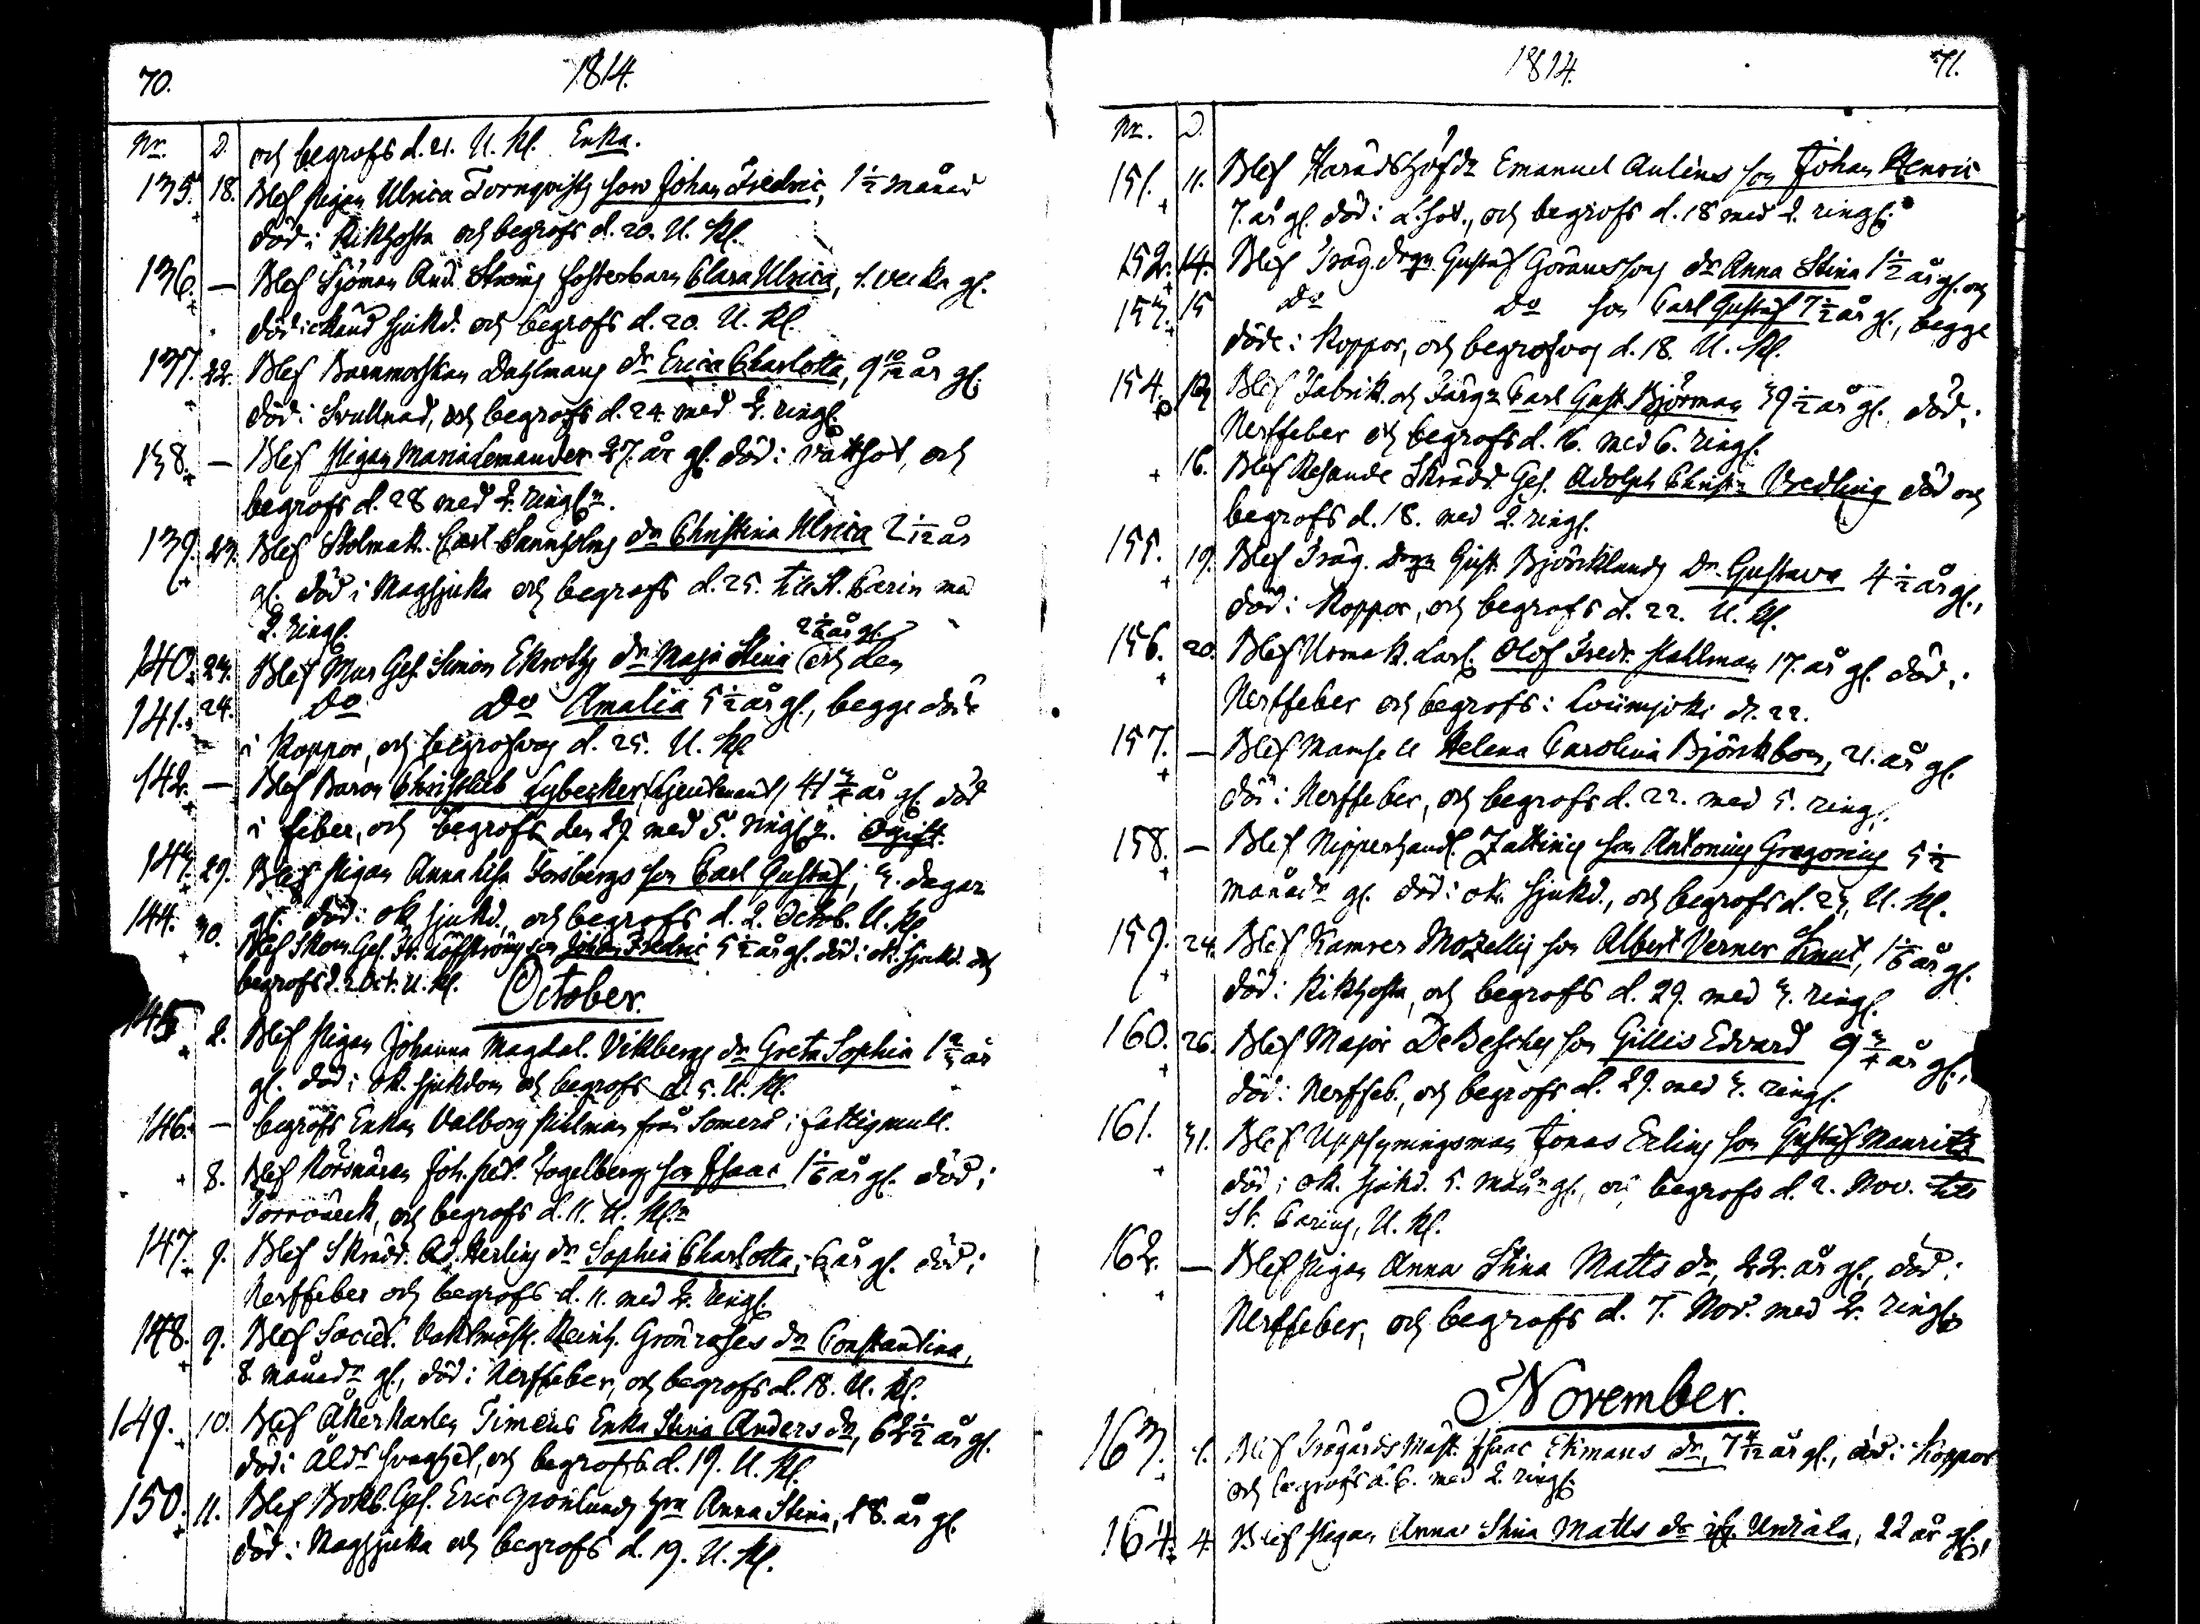 70. 1814.
Nr. D. och begrofs d. 21. U. Kl. Enka.
135. 18. Blef Pigan Ulrica Tornqvists son Johan Fredric, 1 1/2 månad
död i Kikhosta och begrofs d. 20. U. Kl.
136. — Blef Sjöman And. Ströms fosterbarn Clara Ulrica, 1. vecka gl.
död i okänd sjukd. och begrofs d. 20. U. Kl.
137. 22. Blef Barnmorskan Dahlmans dr Erica Charlotta, 9 10/12 år gl.
död i Svullnad, och begrofs d. 24 med 2. ringn.
138. — Blef Pigan Maria Lemander 27. år gl. död i vattsot, och
begrofs d. 28 med 2. ringn.
139. 23. Blef Stolmak. Carl Tannholms dr Christina Ulrica 2 1/12 år
gl. död i Magsjuka och begrofs d. 25. till St. Carin med
2. ringn.
2 1/6 år gl.
140. 23. Blef Mur Ges. Simon Ekroths dr Maja Stina och den
141. 24. Do Do Amalia 5 1/2 år gl., begge döde
i Koppor, och begrofvos d. 25. U. Kl.
142. — Blef Baron Christlieb Lybecker, Lieutenant, 41 3/4 år gl. död
i feber, och begrofs den 29 med 5. ringn. Ogift.
143. 29. Blef Pigan Anna Lisa Forsbergs son Carl Gustaf, 3. dagar
gl. död i ok. sjukd. och begrofs d. 2. Octob. U. Kl.
144. 30. Blef Skom. Ges. Fr. Löfströms son Johan Fredric 5 1/2 år gl. död i ok. sjukd. och
begrofs d. 2 Oct. U. Kl.
October.
145 2. Blef Pigan Johanna Magdal. Vikbergs dr Greta Sophia 1 2/3 år
gl. död i ok. sjukdom och begrofs d. 5. U. Kl.
146. — begrofs Enkan Valborg Pihlman från Somero i fattigmull.
8. Blef Körsnären Joh. Pet. Fogelbergs son Isaac 1 1/6 år gl. död i
Torrvärck, och begrofs d. 11. U. Kl.
147. 9. Blef Skrädd. Ad. Herlins dr Sophia Charlotta, 6 år gl. död i
Nerffeber och begrofs d. 11. med 2. ringn.
148. 9. Blef Societ. Vaktmäst. Heinr. Grönroses dr Constantina,
8 månadr gl., död i Nerffeber, och begrofs d. 18. U. Kl.
149. 10. Blef Åkerkarlen Timens Enka Stina Anders dr, 62 1/2 år gl.
död i Åldr svaghet, och begrofs d. 19. U. Kl.
150. 11. Blef Bokb. Ges. Eric Grönlunds hru Anna Stina, 28. år gl.
död i Magsjuka och begrofs d. 19. U. Kl.
1814. 71.
Nr. D.
151. 11. Blef Häradshöfd. Emanuel Aulins son Johan Henric
7. år gl. död i och begrofs d. 18 med 2. ringn.
152. 14. Blef Träg. drgn Gustaf Göranssons dr Anna Stina 1 1/2 år gl. och
153. 15 Do Do son Carl Gustaf 7 1/2 år gl., begge
döde i Koppor, och begrofvos d. 18. U. Kl.
154. Blef Fabrik. och Färg. Carl Gust. Björman 39 1/2 år gl., död i
Nerffeber och begrofs d. 16. med 6. ringn.
16. Blef Resande Skrädd. Ges. Adolph Christ. Vredling död och
begrofs d. 18. med 2. ringn.
155. 19. Blef Träg. drgn Gust. Björklunds dr. Gustava 4 1/2 år gl.,
död i Koppor, och begrofs d. 22. U. Kl.
156. 20. Blef Urmak. Lärl. Olof Fredr. Hallman 17. år gl. död i
Nerffeber och begrofs i d. 22.
157. — Blef Mamsell Helena Carolina Björkbom, 21. år gl.
död i Nerffeber, och begrofs d. 22. med 5. ringn.
158. — Blef Nipperhandl. Zattins son Antonius Gregorius 5 1/2
månadr gl. död i ok. sjukd., och begrofs d. 23. U. Kl.
159. 24. Blef Kamrer Mozellis son Albert Verner Knut, 1 1/6 år gl.
död i Kikhosta, och begrofs d. 29. med 3. ringn.
160. 26. Blef Major De Besches son Gillis Edvard 9 3/4 år gl.,
död i Nerffeb., och begrofs d. 29. med 3. ringn.
161. 31. Blef Uppsyningsman Jonas Erlins son Gustaf Mauritz
död i ok. sjukd. 5. månr gl., och begrofs d. 2. Nov. till
St. Carins, U. Kl.
162. — Blef Pigan Anna Stina Matts dr, 22. år gl., död i
Nerffeber, och begrofs d. 7. Nov. med 2. ringn.
November.
163. 1. Blef Trägårds Mäst. Isaac Ekmans dr, 7 4/12 år gl., död i Koppor
och begrofs d. 6. med 2. ringn.
164. 4. Blef Pigan Anna Stina Matts dr ifr. Undala, 22 år gl.,